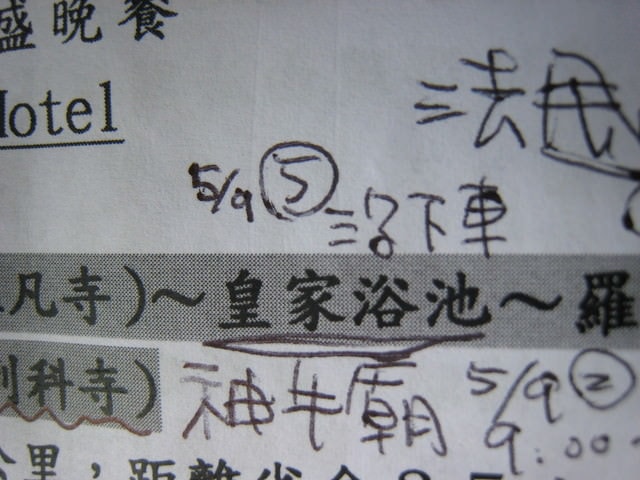 盛晚餐
Hotel
法
5/9 ⑤
沒下車
凡寺)~皇家浴池~羅
科寺)
神牛廟 5/9 ②
9:00
公里,距離